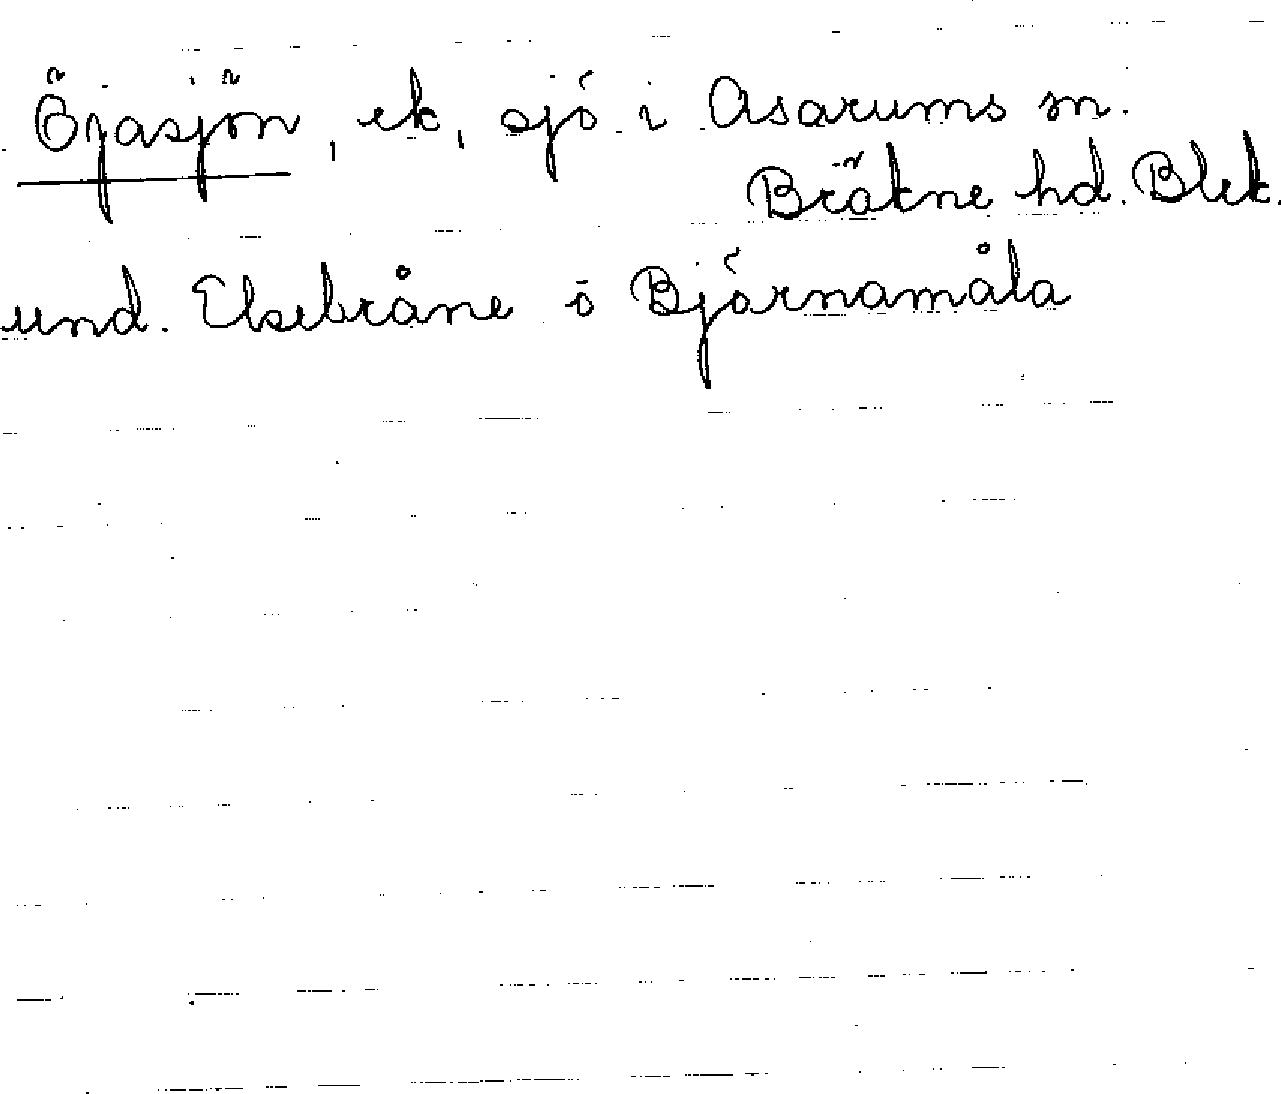 Öjasjön, ek, sjö i Asarums sn.
Bräkne hd. Blek.
und. Elsebråne ö Björnamåla